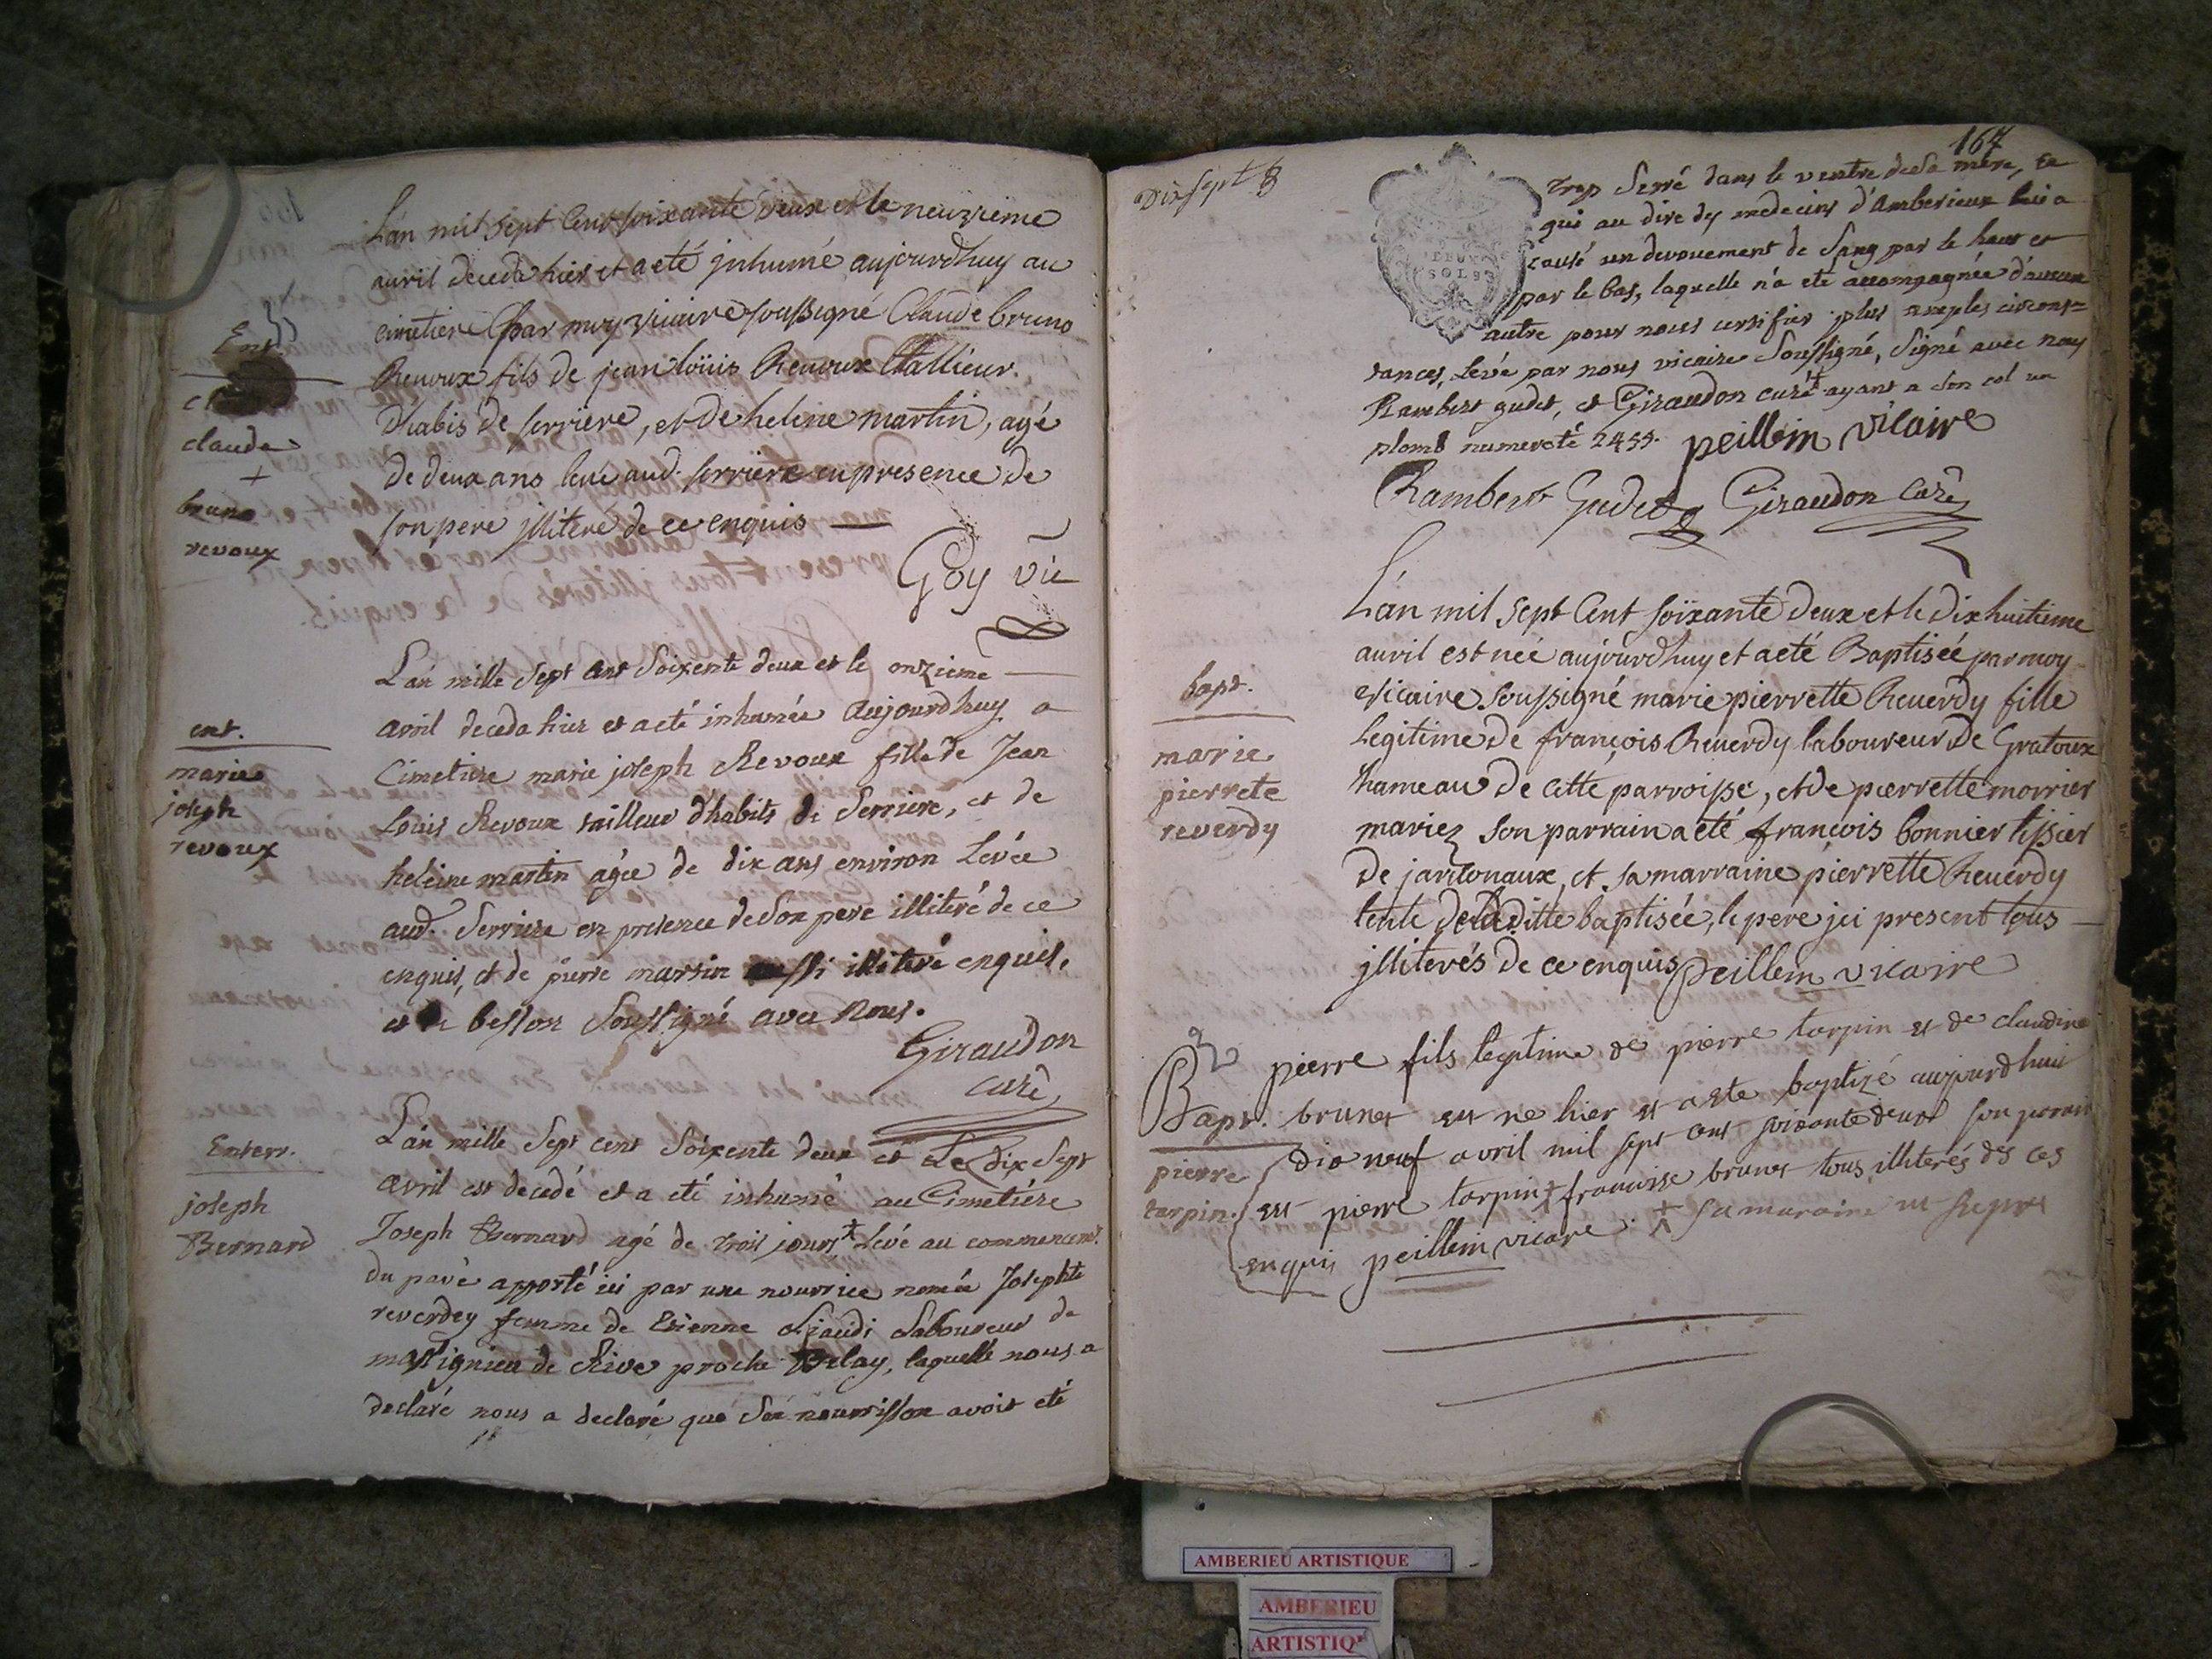 Ent.
claude
+
bruno
revoux
L'an mil sept Cent soixante deux et le neuvzieme
auril deceda hier et a eté jnhumé aujourdhuy au
cimetiere par moy viccaire soussigné Claude bruno
Reuoux fils de jean loüis Reuoux tallieur
dhabis de serriere, et de heleine martin, agé
de deux ans levé aud. serriere en presence de
son pere jlliteré de ce enquis —
Goy vic
ent.
marie
joseph
revoux
L'an mille Sept cent Soixente deux et le onzieme —
avril deceda hier et a eté inhumée Aujourd huy a
Cimetiere marie joseph Revoux fille de Jean
Louis Revoux tailleur d'habits de Serriere, et de
heleine martin agée de dix ans environ Levée
aud. Serriere en presence de Son pere illiteré de ce
enquis, et de pierre martin aussi illiteré enquis,
et de besson Soussigné avec Nous.
Giraudon
curé
Enterr.
joseph
Bernard
L'an mille Sept cent Soixente deux et Le dix Sept
avril est decedé et a eté inhumé au Cimetiére
Joseph Bernard agé de trois jours + Levé au commencem.t
du pavé apporté ici par une nourrice nomée Josephte
reverdey femme de Etienne Laboureur de
massignieu de Rive proche Belay, laquelle nous a
declaré nous a declaré que Son nourrisson avoit eté
Dix sept
167
DEUX
SOLS
trop Serré dans le ventre de Sa mére, ce
qui au dire des medecins d'Amberieux lui a
causé un devouement de Sang par le haut et
par le bas, laquelle n'a eté accompagnée d'aucun
autre pour nous certifier plus amples circons=
tances, Levé par nous vicaire Soussigné, Signé avec nous
Rambert gudet, et Giraudon curé + ayant a Son col un
plomb numeroté 2455. peillein vicaire
Rambert Gudet Giraudon curé
bapt.
marie
pierrete
reverdy
L'an mil sept Cent soixante deux et le dix huitieme
auril est née aujourdhuy et a eté Baptisée par moy
vicaire soussigné marie pierrette Reuerdy fille
legitime de françois Reuerdy laboureur de Gratoux
hameau de cette parroisse, et de pierrette morrier
mariez son parrain a eté françois bonnier tissier
de jardonaux, et sa marraine pierrette Reuerdy
tente de laditte baptisée, le pere jci present tous —
jlliterés de ce enquis peillein vicaire
Bapt.
pierre
tarpin.
pierre fils legitime de pierre tarpin et de claudine
brunet est ne hier et a este baptizé aujourdhui
dix neuf avril mil sept cent soixante deux son parain
est pierre tarpin + francoise brunet tous illiterés des ces
enquis peillein vicaire. + sa maraine est
AMBERIEU ARTISTIQUE
AMBERIEU
ARTISTIQ